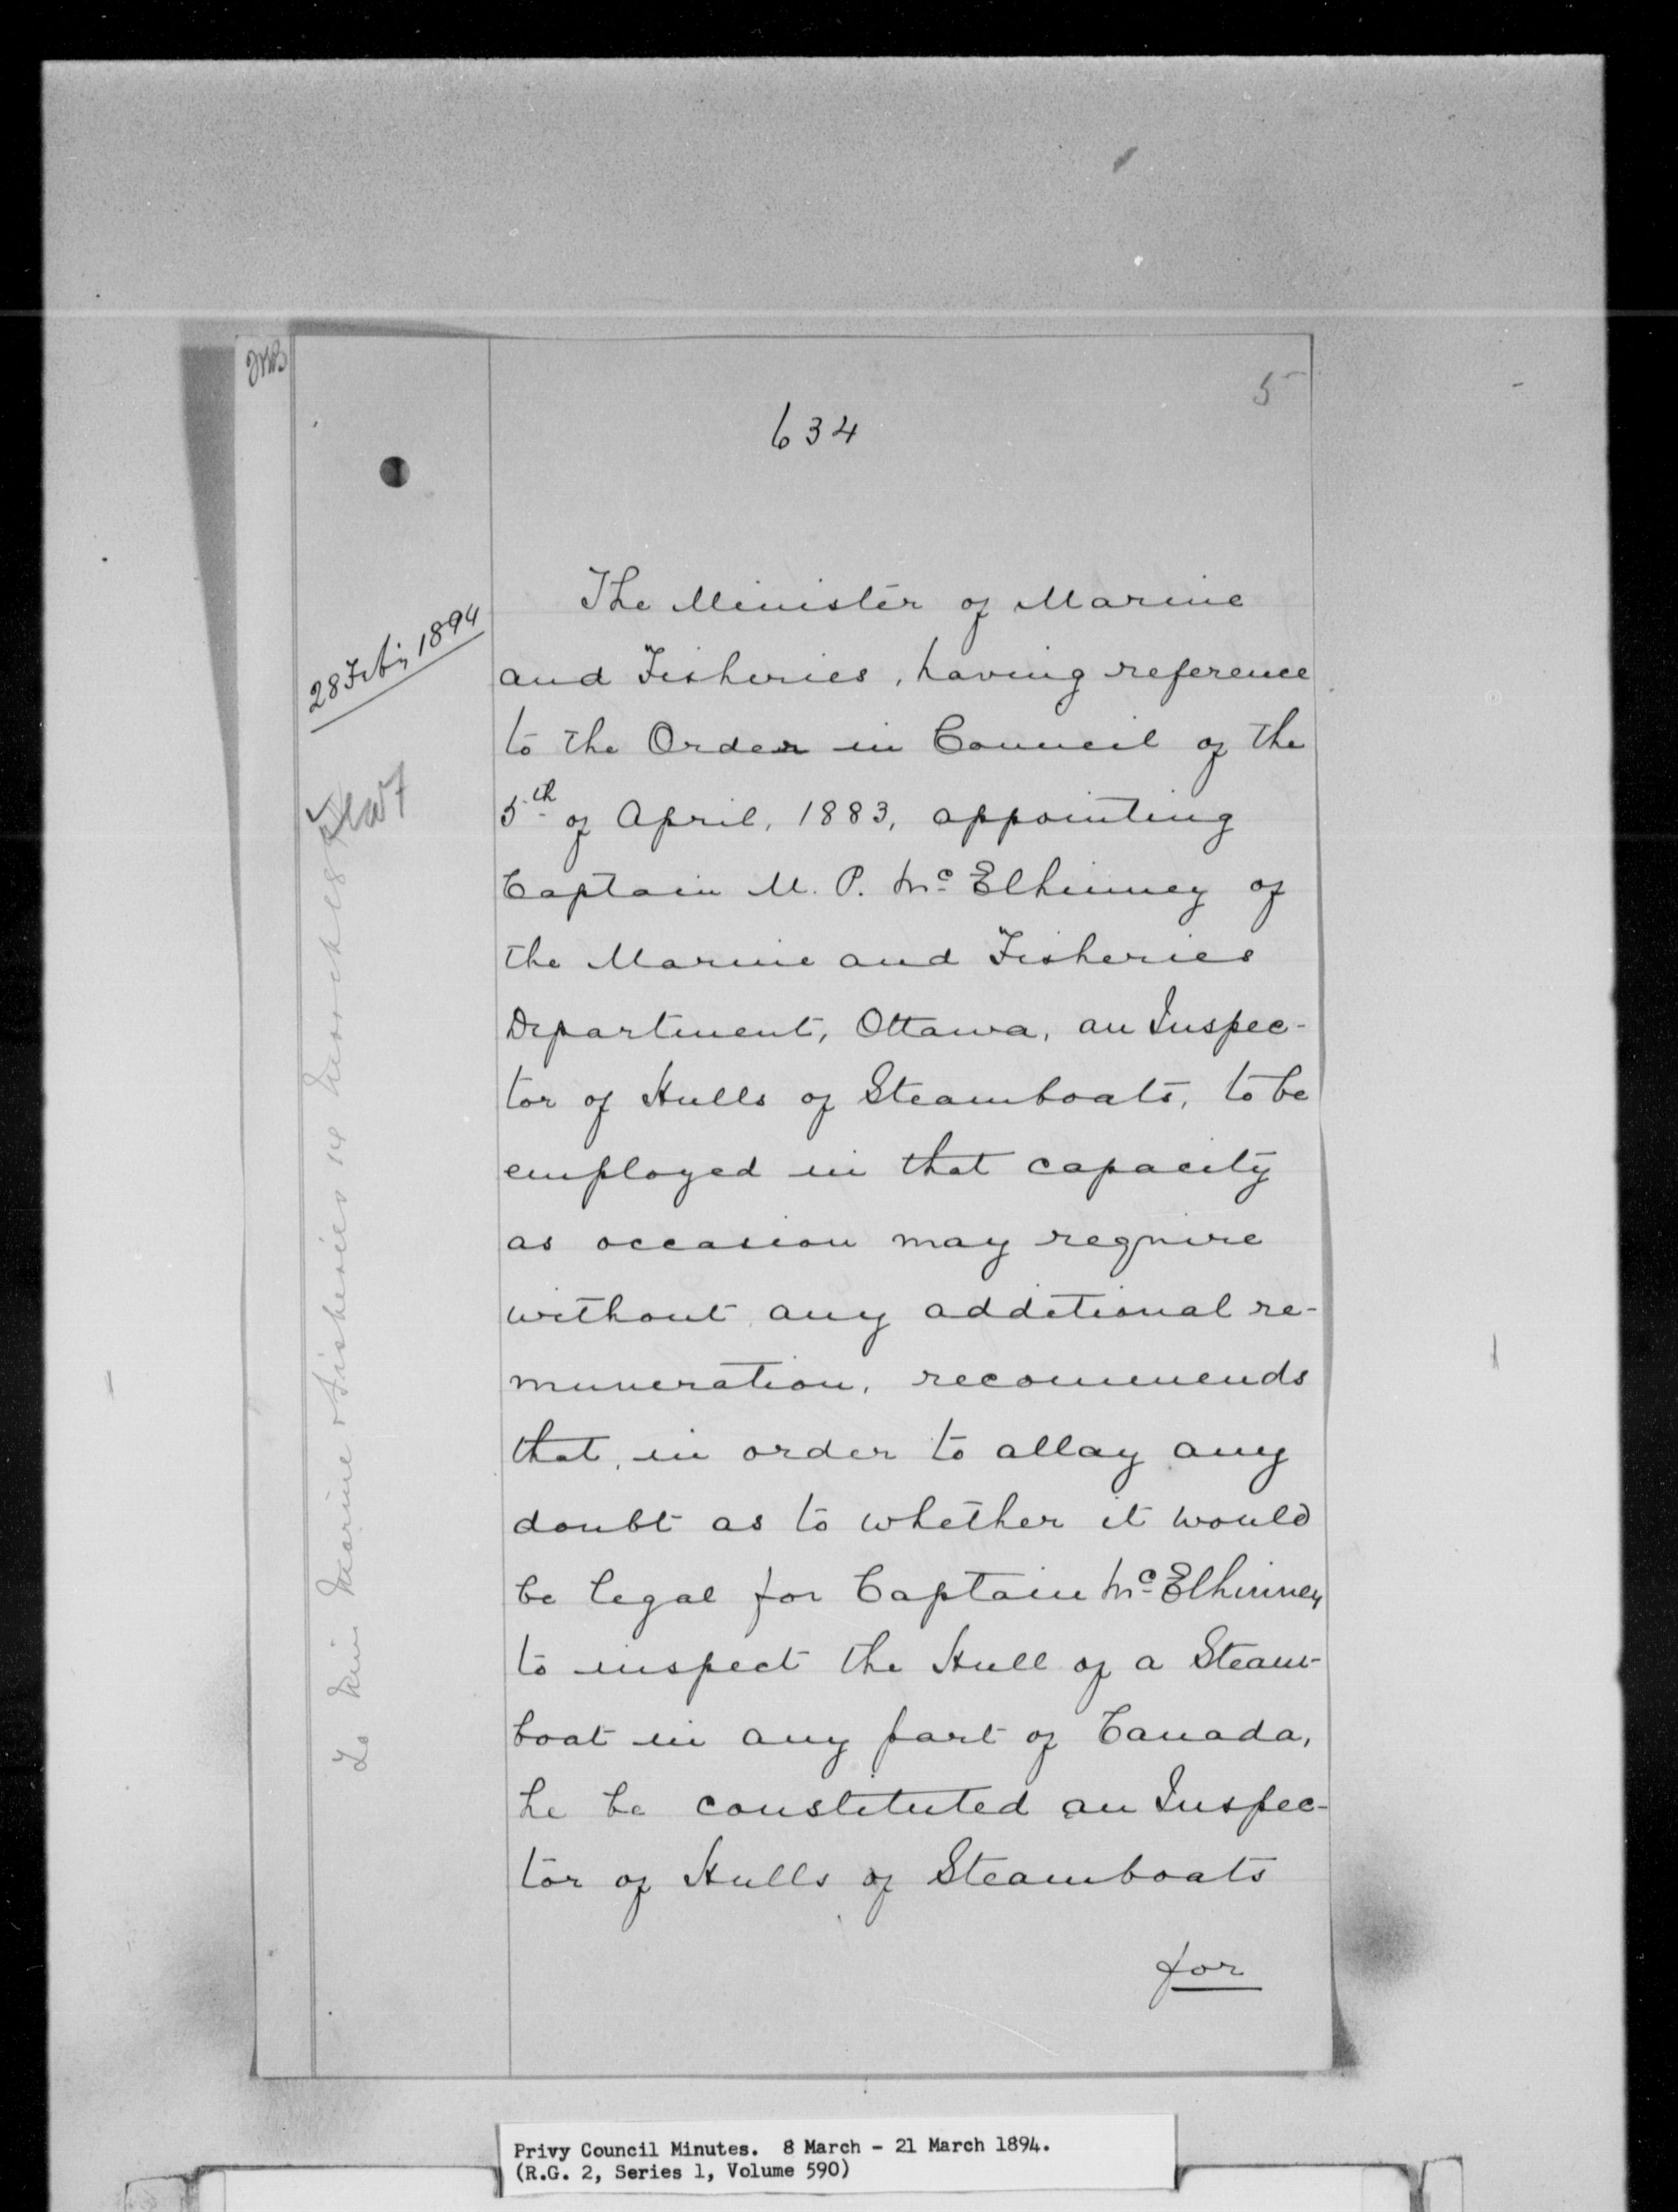 5
634
28 Feb'y 1894
The Minister of Marine
and Fisheries, having reference
to the Order in Council of the
5th of April, 1883, appointing
Captain M. P. McElhinney of
the Marine and Fisheries
Department, Ottawa, an Inspec-
tor of Hulls of Steamboats, to be
employed in that capacity
as occasion may require
without any additional re-
muneration, recommends
that, in order to allay any
doubt as to whether it would
be legal for Captain McElhinney
to inspect the Hull of a Steam-
boat in any part of Canada,
he be constituted an Inspec-
tor of Hulls of Steamboats
for
To Min Marine & Fisheries 14 March
Privy Council Minutes. 8 March - 21 March 1894.
(R.G. 2, Series 1, Volume 590)